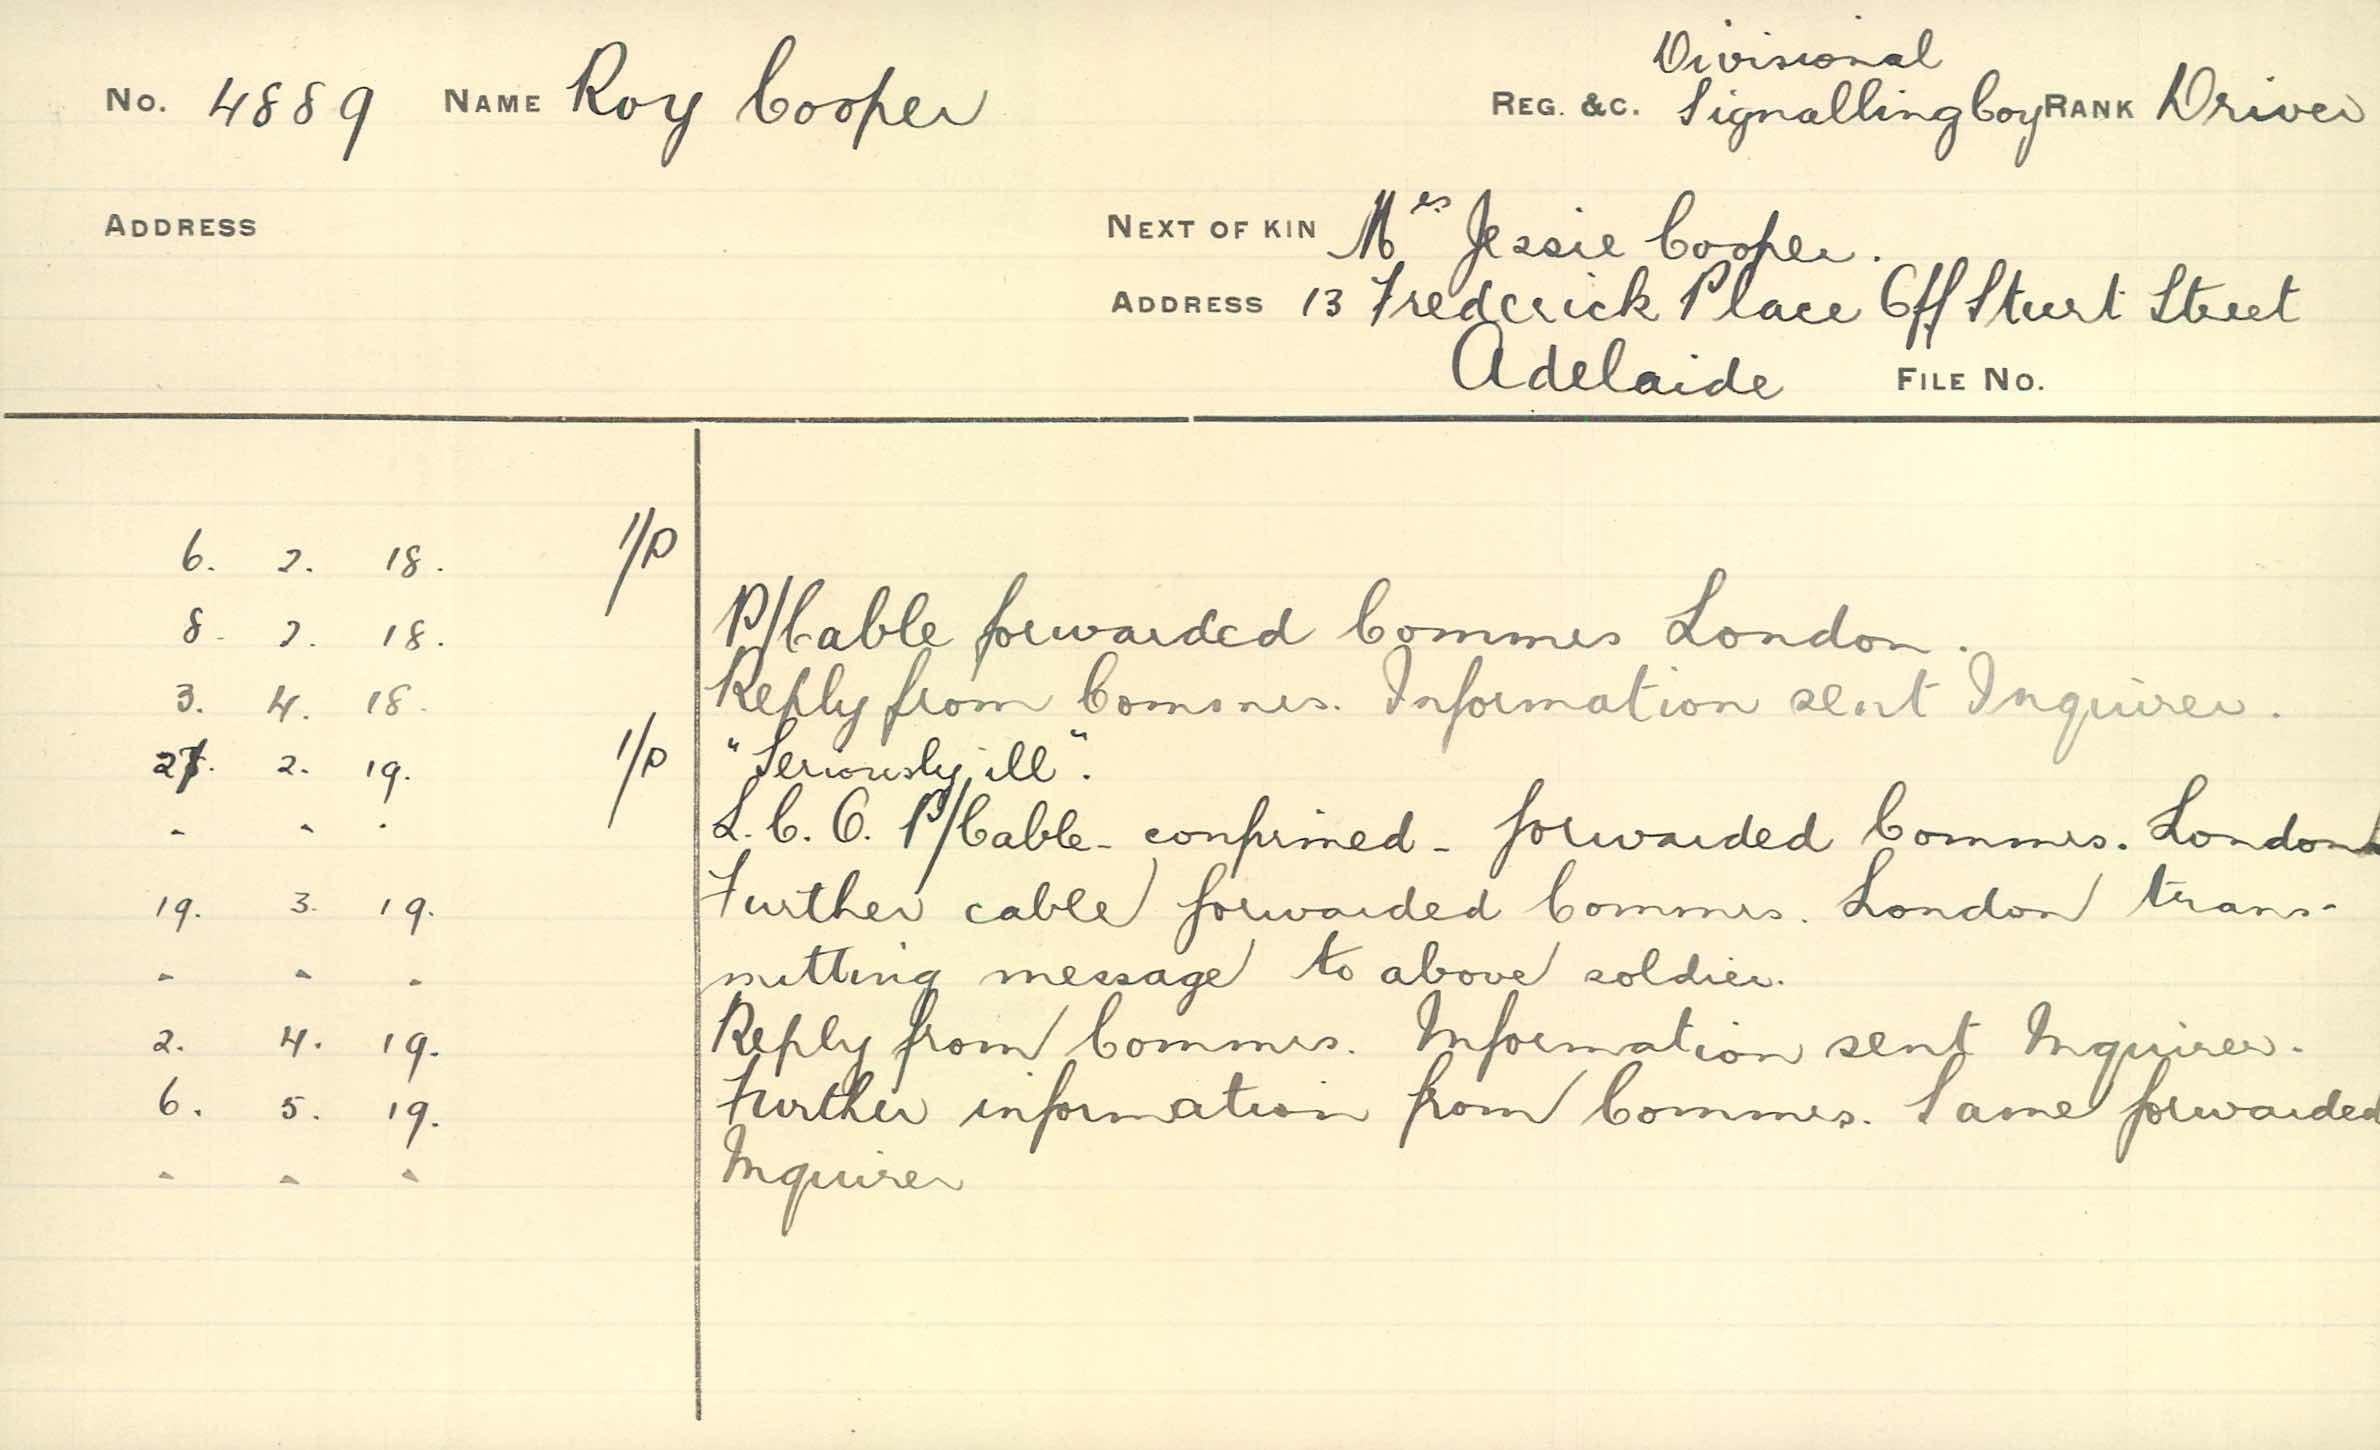 Divisional
No. 4889 NAME Roy Cooper REG. &C. Signalling Coy RANK Driver
ADDRESS NEXT OF KIN Mrs Jessie Cooper.
ADDRESS 13 Frederick Place Off Sturt Street
Adelaide FILE NO.
6. 2. 18. 1/P
8. 2. 18. P/Cable forwarded Commrs London.
3. 4. 18. Reply from Commrs. Information sent Inquirer.
2. 19. 1/P "Seriously ill".
" " " L. C. O. P/Cable - confirmed - forwarded Commrs. London
19. 3. 19. Further cable forwarded Commrs. London trans-
" " " mitting message to above soldier.
2. 4. 19. Reply from Commrs. Information sent Inquirer.
6. 5. 19. Further information from Commrs. Same forwarded
" " " Inquirer